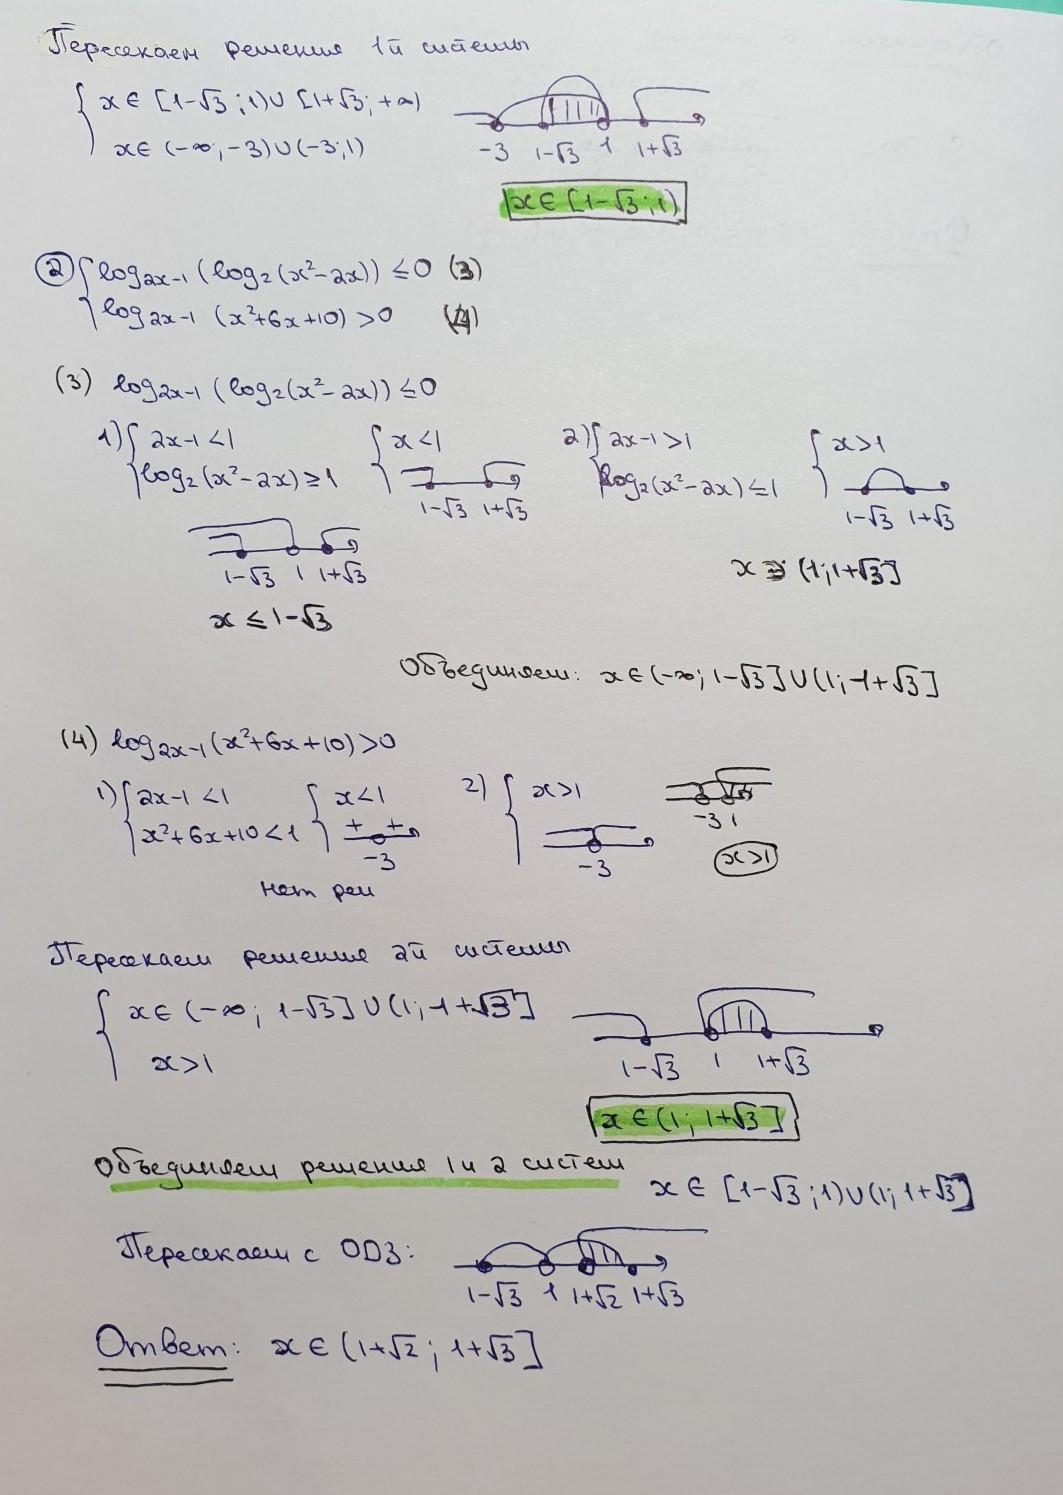 Пересекаем решения 1й системы
x∈[1-√3;1)∪[1+√3;+∞)
x∈(-∞;-3)∪(-3;1)
-3 1-√3 1 1+√3
x∈[1-√3;1)
② log₂ₓ₋₁(log₂(x²-2x))≤0 (3)
log₂ₓ₋₁(x²+6x+10)>0 (4)
(3) log₂ₓ₋₁(log₂(x²-2x))≤0
1) 2x-1<1 x<1 2) 2x-1>1 x>1
log₂(x²-2x)≥1 log₂(x²-2x)≤1
1-√3 1+√3 1-√3 1+√3
1-√3 1 1+√3 x∈(1;1+√3]
x≤1-√3
Объединяем: x∈(-∞;1-√3]∪(1;1+√3]
(4) log₂ₓ₋₁(x²+6x+10)>0
1) 2x-1<1 x<1 2) x>1
x²+6x+10<1 + + -3 1
-3 -3 x>1
нет реш
Пересекаем решения 2й системы
x∈(-∞;1-√3]∪(1;1+√3]
x>1 1-√3 1 1+√3
x∈(1;1+√3]
Объединяем решения 1 и 2 систем
x∈[1-√3;1)∪(1;1+√3]
Пересекаем с ОДЗ:
1-√3 1 1+√2 1+√3
Ответ: x∈(1+√2;1+√3]